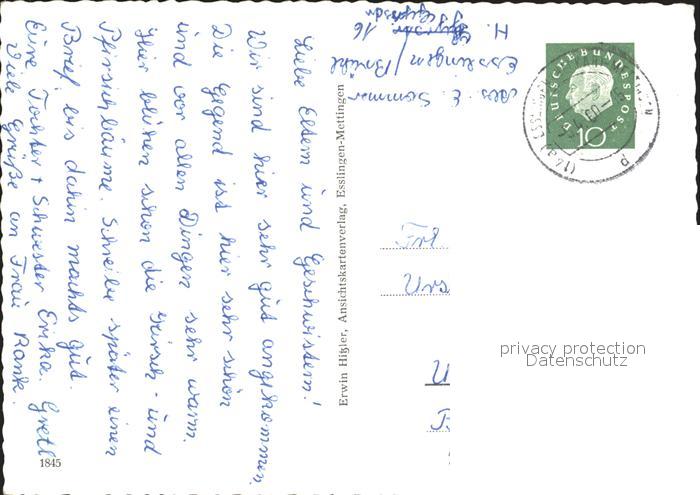 Liebe Eltern und Geschwistern!
Wir sind hier sehr gut angekommen.
Die Gegend ist hier sehr schön
und vor allen Dingen sehr warm.
Hier blühen schon die Kirsch- und
Pfirsichbäume. Schreibe später einen
Brief, bis dahin machts gut.
Eure Tochter + Schwester Erika. Gretl
Viele Grüße an Frau Rank.
1845
Erwin Higler, Ansichtskartenverlag, Esslingen-Mettingen
Abs. E. Sommer
Esslingen/Brühl
H. 16
DEUTSCHE BUNDESPOST
10
Frl.
Urs
U
privacy protection
Datenschutz